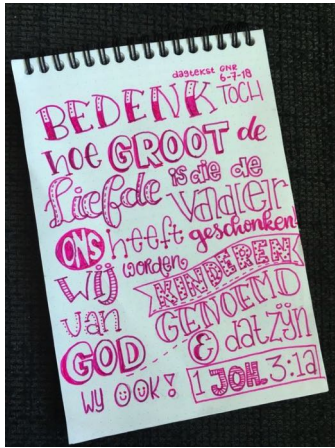 dagtekst GNR
6-7-18
BEDENK TOCH
hoe GROOT de
liefde is die de
vader
ONS heeft geschonken!
WIJ worden
KINDEREN
van GENOEMD
GOD & dat zijn
WIJ OOK!
1 JOH. 3:1a